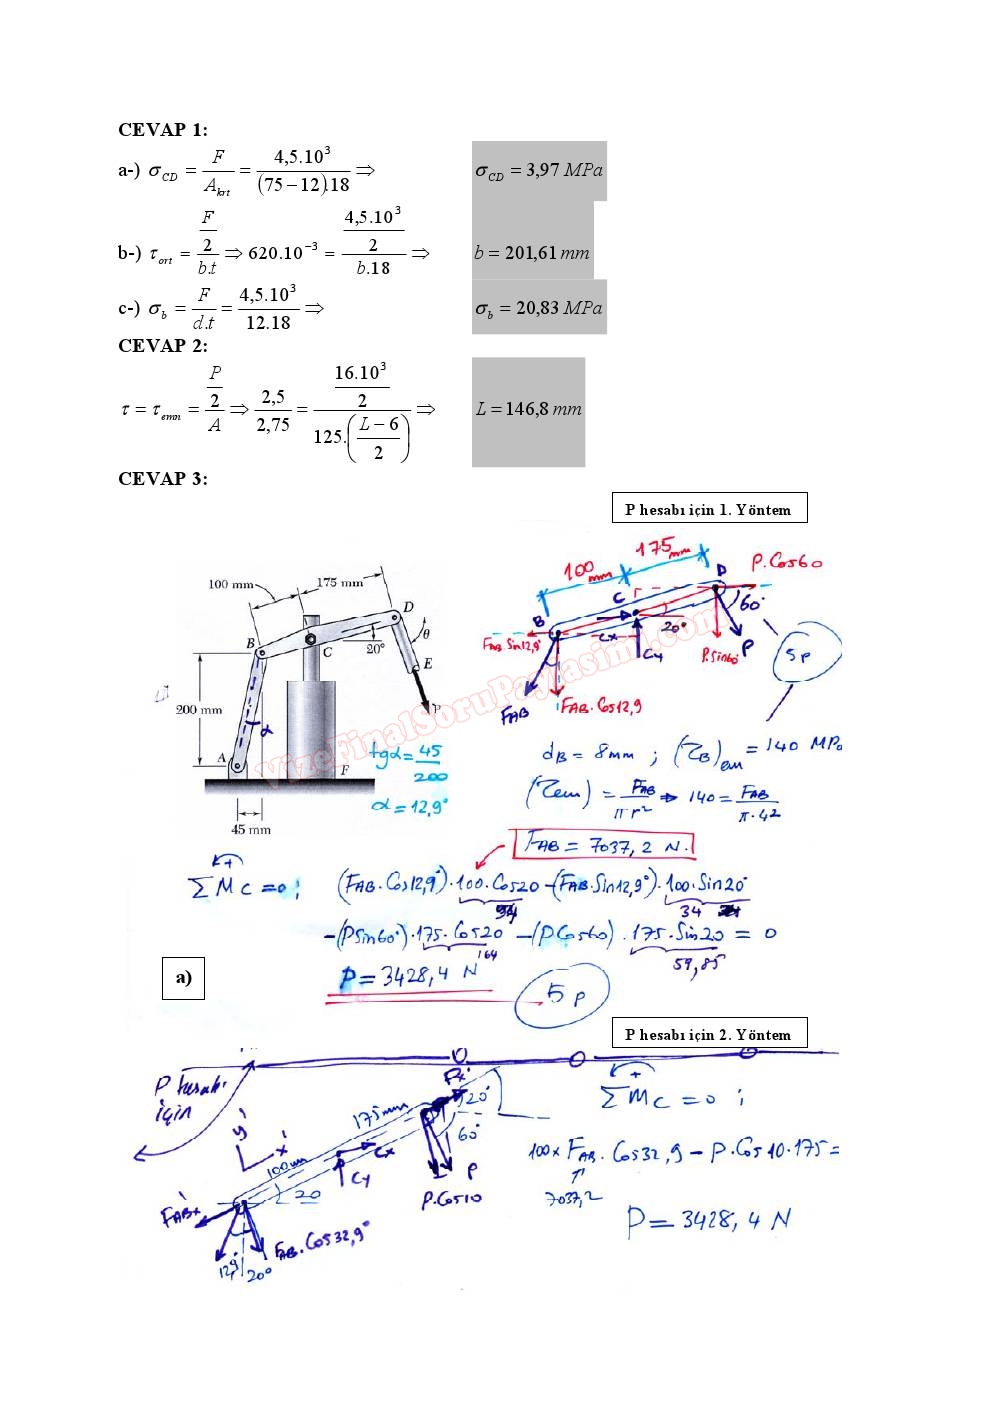 CEVAP 1:
a-) σ_CD = F / A_krt = 4,5.10³ / (75−12).18 ⇒ σ_CD = 3,97 MPa
b-) τ_ort = (F/2) / b.t ⇒ 620.10⁻³ = (4,5.10³/2) / b.18 ⇒ b = 201,61 mm
c-) σ_b = F / d.t = 4,5.10³ / 12.18 ⇒ σ_b = 20,83 MPa
CEVAP 2:
τ = τ_emn = (P/2) / A ⇒ 2,5 / 2,75 = (16.10³/2) / 125.((L−6)/2) ⇒ L = 146,8 mm
CEVAP 3:
P hesabı için 1. Yöntem
100 mm
175 mm
B
C
D
20°
θ
E
P
200 mm
α
A
F
45 mm
tgα = 45/200
α = 12,9°
100 mm
175 mm
D
P.Cos60
B
C
60°
20°
Cx
Cy
P
P.Sin60
F_AB.Sin12,9°
F_AB
F_AB.Cos12,9
5p
d_B = 8mm ; (τ_B)_em = 140 MPa
(τ_em) = F_AB / πr² ⇒ 140 = F_AB / π.4²
F_AB = 7037,2 N.
ΣM_C = 0 ; (F_AB.Cos12,9°).100.Cos20 − (F_AB.Sin12,9°).100.Sin20°
94
34
−(PSin60°).175.Cos20 − (PCos60).175.Sin20 = 0
164
59,85
a)
P = 3428,4 N
5 p
VizeFinalSoruPaylasimi.com
P hesabı için 2. Yöntem
P hesabı
için
ΣM_C = 0 ;
y'
x'
100mm
175mm
20°
60°
Cx
Cy
P
P.Cos10
20
F_ABx
F_AB.Cos32,9°
12,9°
20°
100 x F_AB.Cos32,9 − P.Cos10.175 =
7037,2
P = 3428,4 N